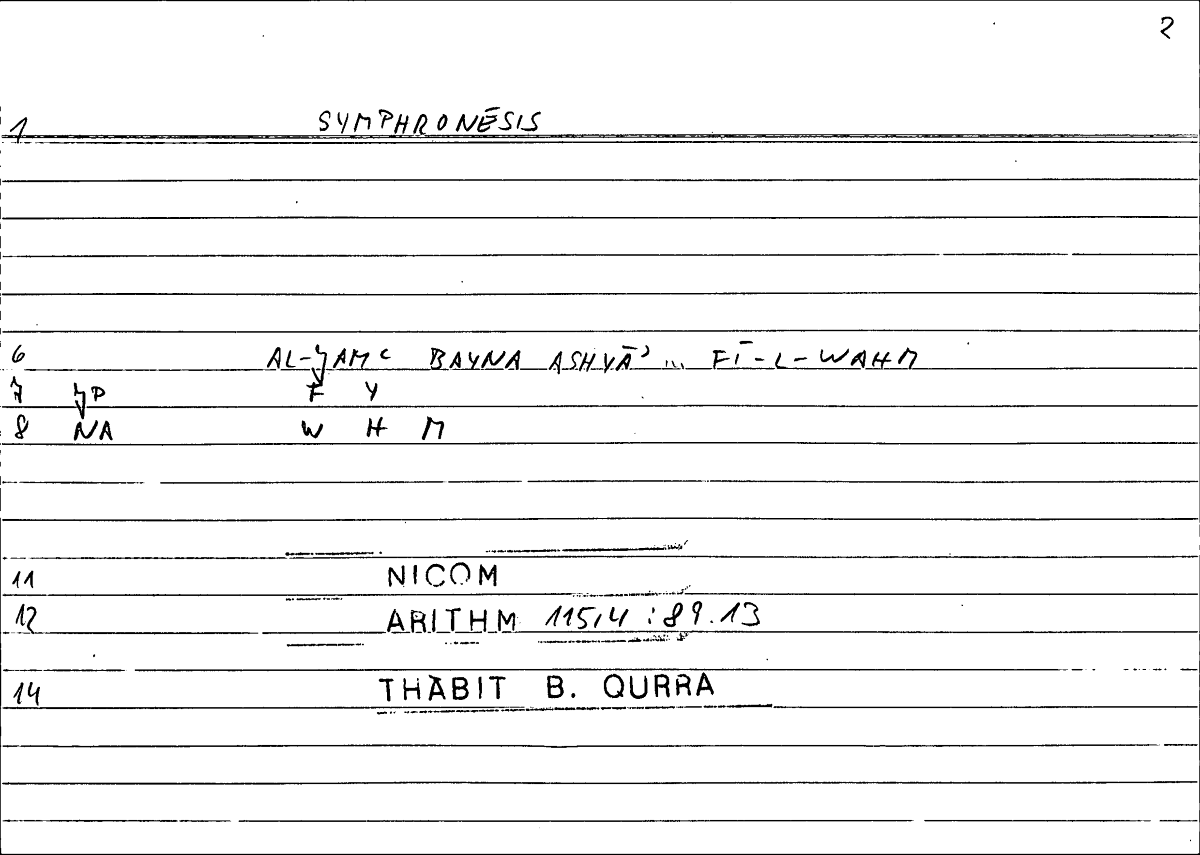 2
1 SYMPHRONĒSIS
6 AL-JAMʿ BAYNA ASHYĀʾ ... FĪ-L-WAHM
7 JP F Y
8 NA W H M
11 NICOM
12 ARITHM 115,4 : 89.13
14 THĀBIT B. QURRA